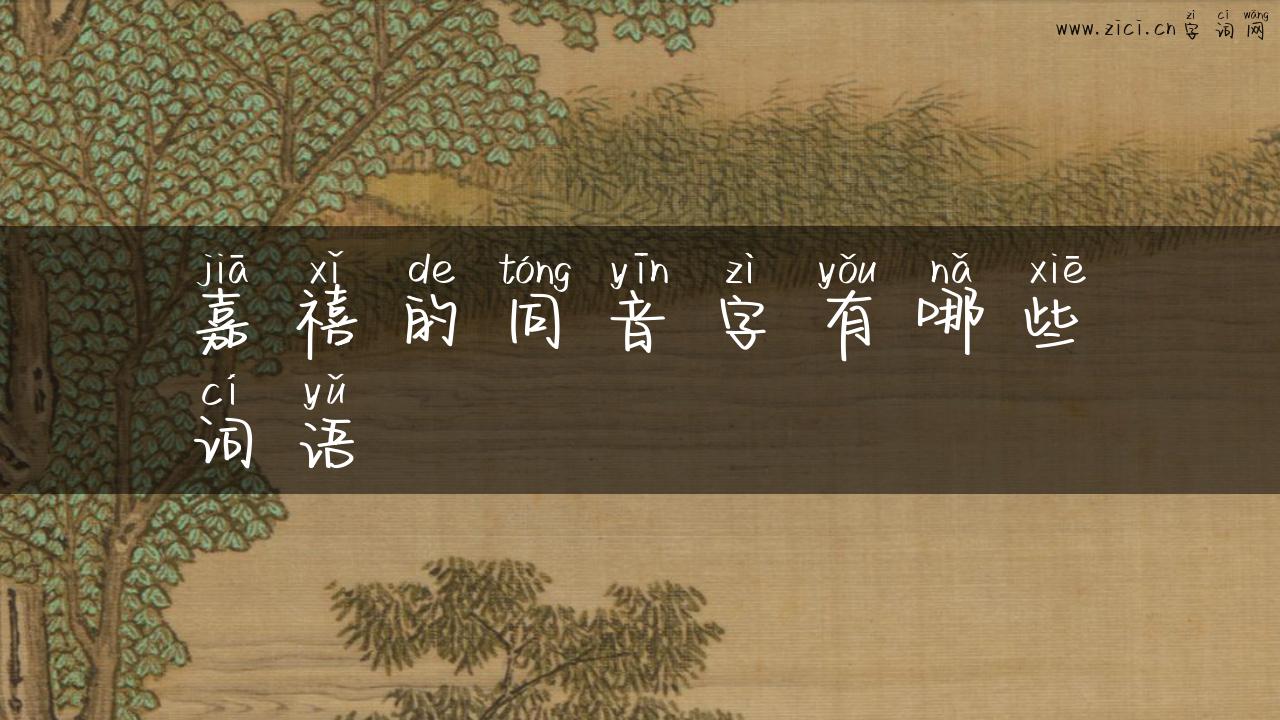 zì cí wǎng
www.zici.cn字词网
jiā xǐ de tóng yīn zì yǒu nǎ xiē
嘉禧的同音字有哪些
cí yǔ
词语